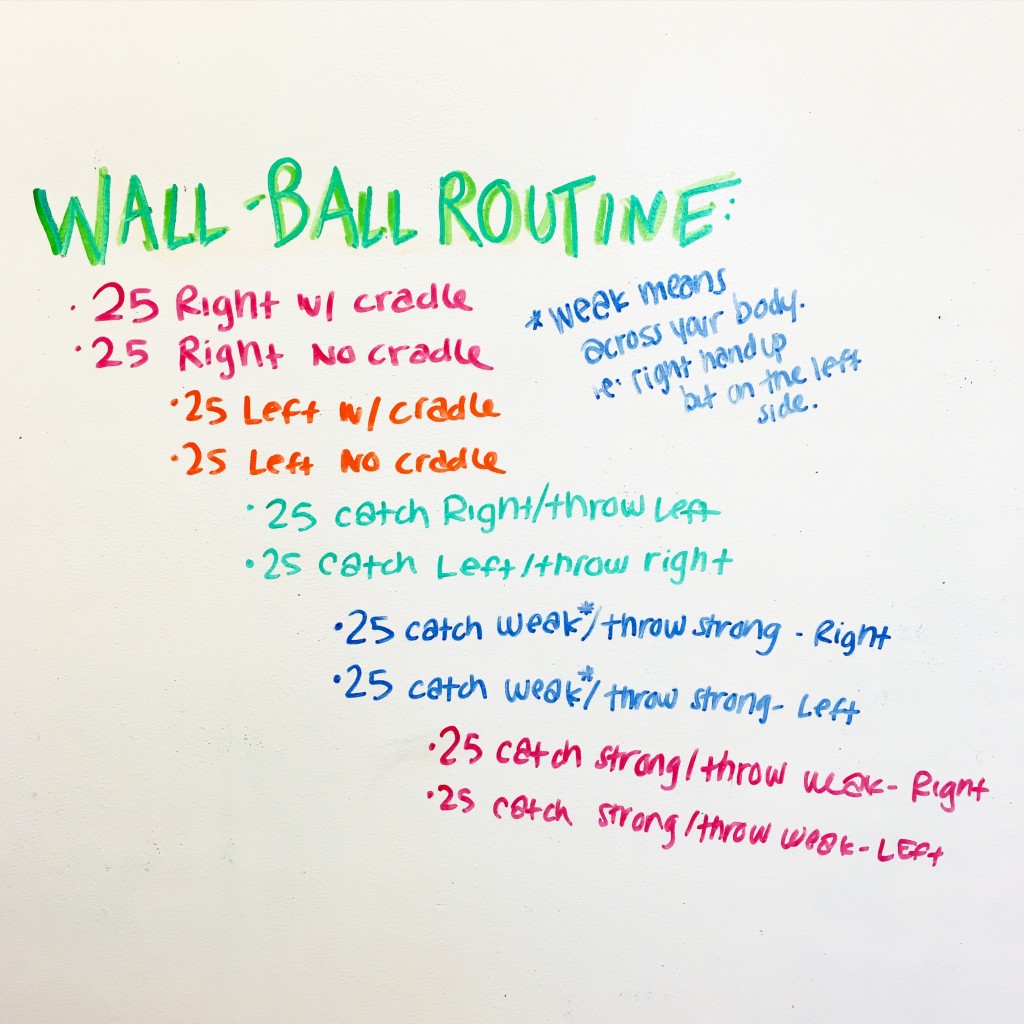 WALL-BALL ROUTINE:
· 25 Right w/ cradle
· 25 Right No cradle
· 25 Left w/ cradle
· 25 Left No cradle
· 25 catch Right/throw Left
· 25 catch Left/throw right
· 25 catch weak*/throw strong - Right
· 25 catch weak*/throw strong - Left
· 25 catch strong/throw weak - Right
· 25 catch strong/throw weak - LEft
* weak means
across your body.
ie: right hand up
but on the left
side.